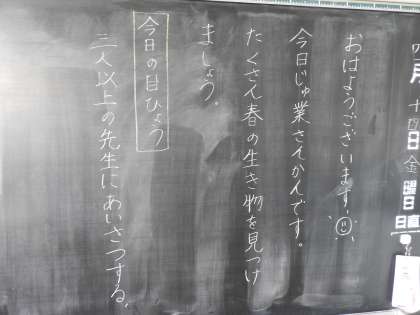 おはようございます
今日じゅ業さんかんです。
たくさん春の生き物を見つけ
ましょう。
今日の目ひょう
三人以上の先生にあいさつする。
月
十
日
金
曜日
日直